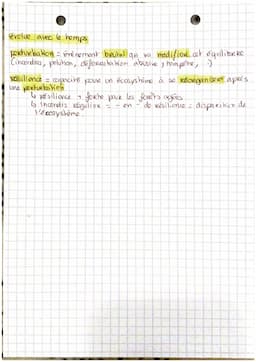 évolue avec le temps
perturbation = évènement brutal qui va modifier cet équilibre
(incendies, pollution, déforestation abusive, tempête, ...)
résilience = capacité pour un écosystème à se réorganiser après
une perturbation
↳ résilience + forte pour les forêts agées
↳ incendies régulier = - en - de résilience = disparition de
l'écosystème.